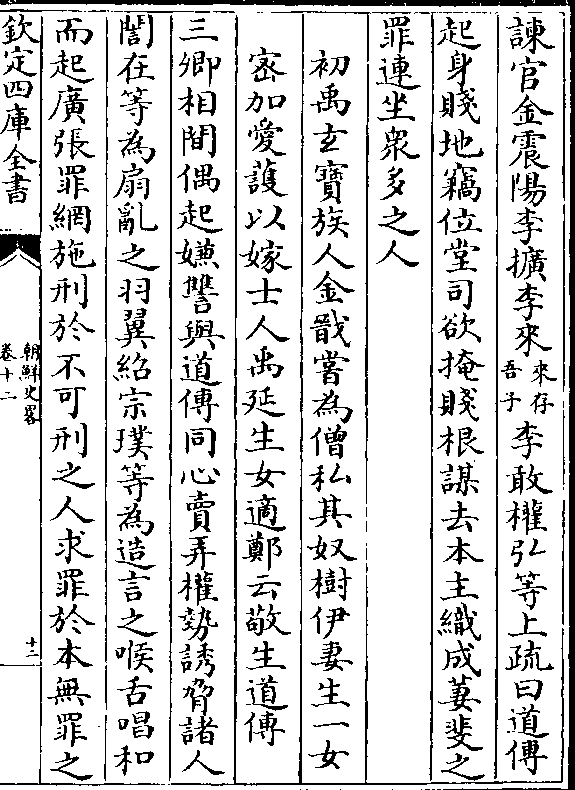 諫官金震陽李擴李來來存吾子李敢權弘等上疏曰道傳
起身賤地竊位堂司欲掩賤根謀去本主織成萋斐之
罪連坐衆多之人
初禹玄寶族人金戩嘗為僧私其奴樹伊妻生一女
宻加愛護以嫁士人禹延生女適鄭云敬生道傳
三卿相閒偶起嫌讐與道傳同心賣弄權勢誘脅諸人
誾在等為扇亂之羽翼紹宗璞等為造言之喉舌唱和
而起廣張罪網施刑於不可刑之人求罪於本無罪之
欽定四庫全書
朝鮮史畧
卷十二
十二